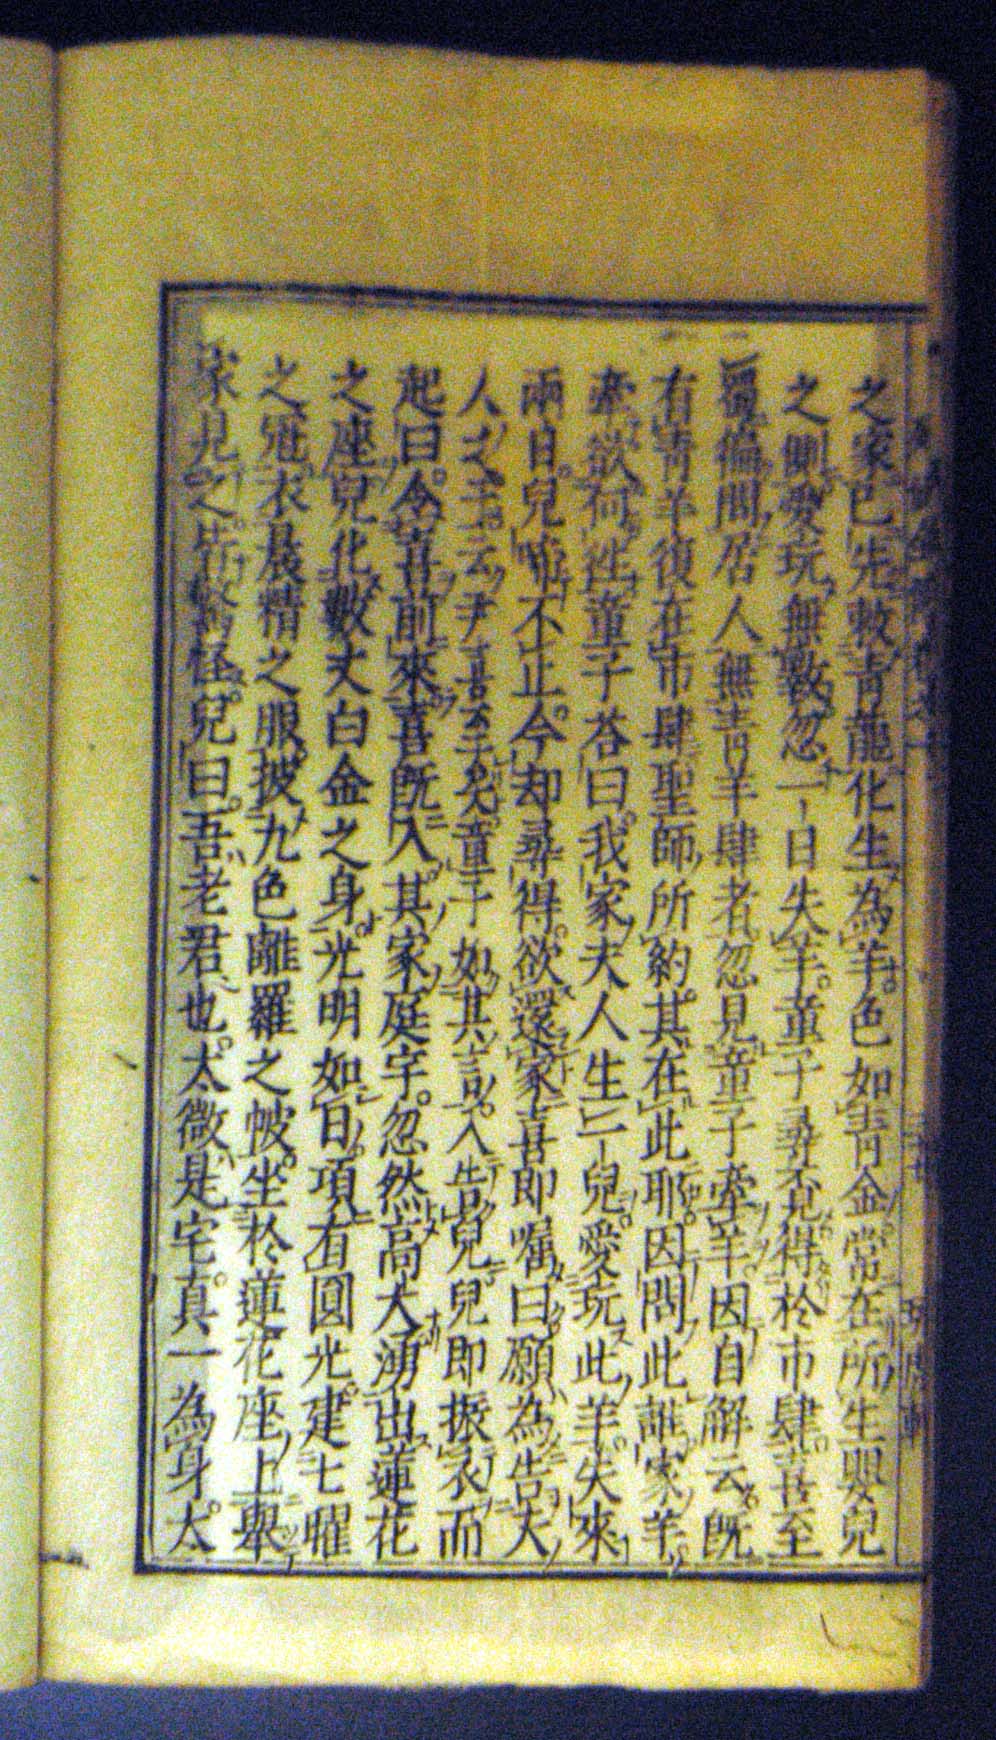 之家已先敕青龍化生為羊色如青金常在所生嬰兒
之側愛玩無斁忽一日失羊童子尋求得於市肆喜至
蜀徧問居人無青羊肆者忽見童子牽羊因自解云既
有青羊復在市肆聖師所約其在此耶因問此誰家羊
牽欲何往童子荅曰我家夫人生一兒愛玩此羊失來
兩日兒啼不止今却尋得欲還家喜即囑曰願為告夫
人之子云尹喜至矣童子如其言入告兒兒即振衣而
起曰令喜前來喜既入其家庭宇忽然高大湧出蓮花
之座兒化數丈白金之身光明如日項有圓光建七曜
之冠衣晨精之服披九色離羅之帔坐於蓮花座上舉
家見之皆驚怪兒曰吾老君也太微是宅真一為身太